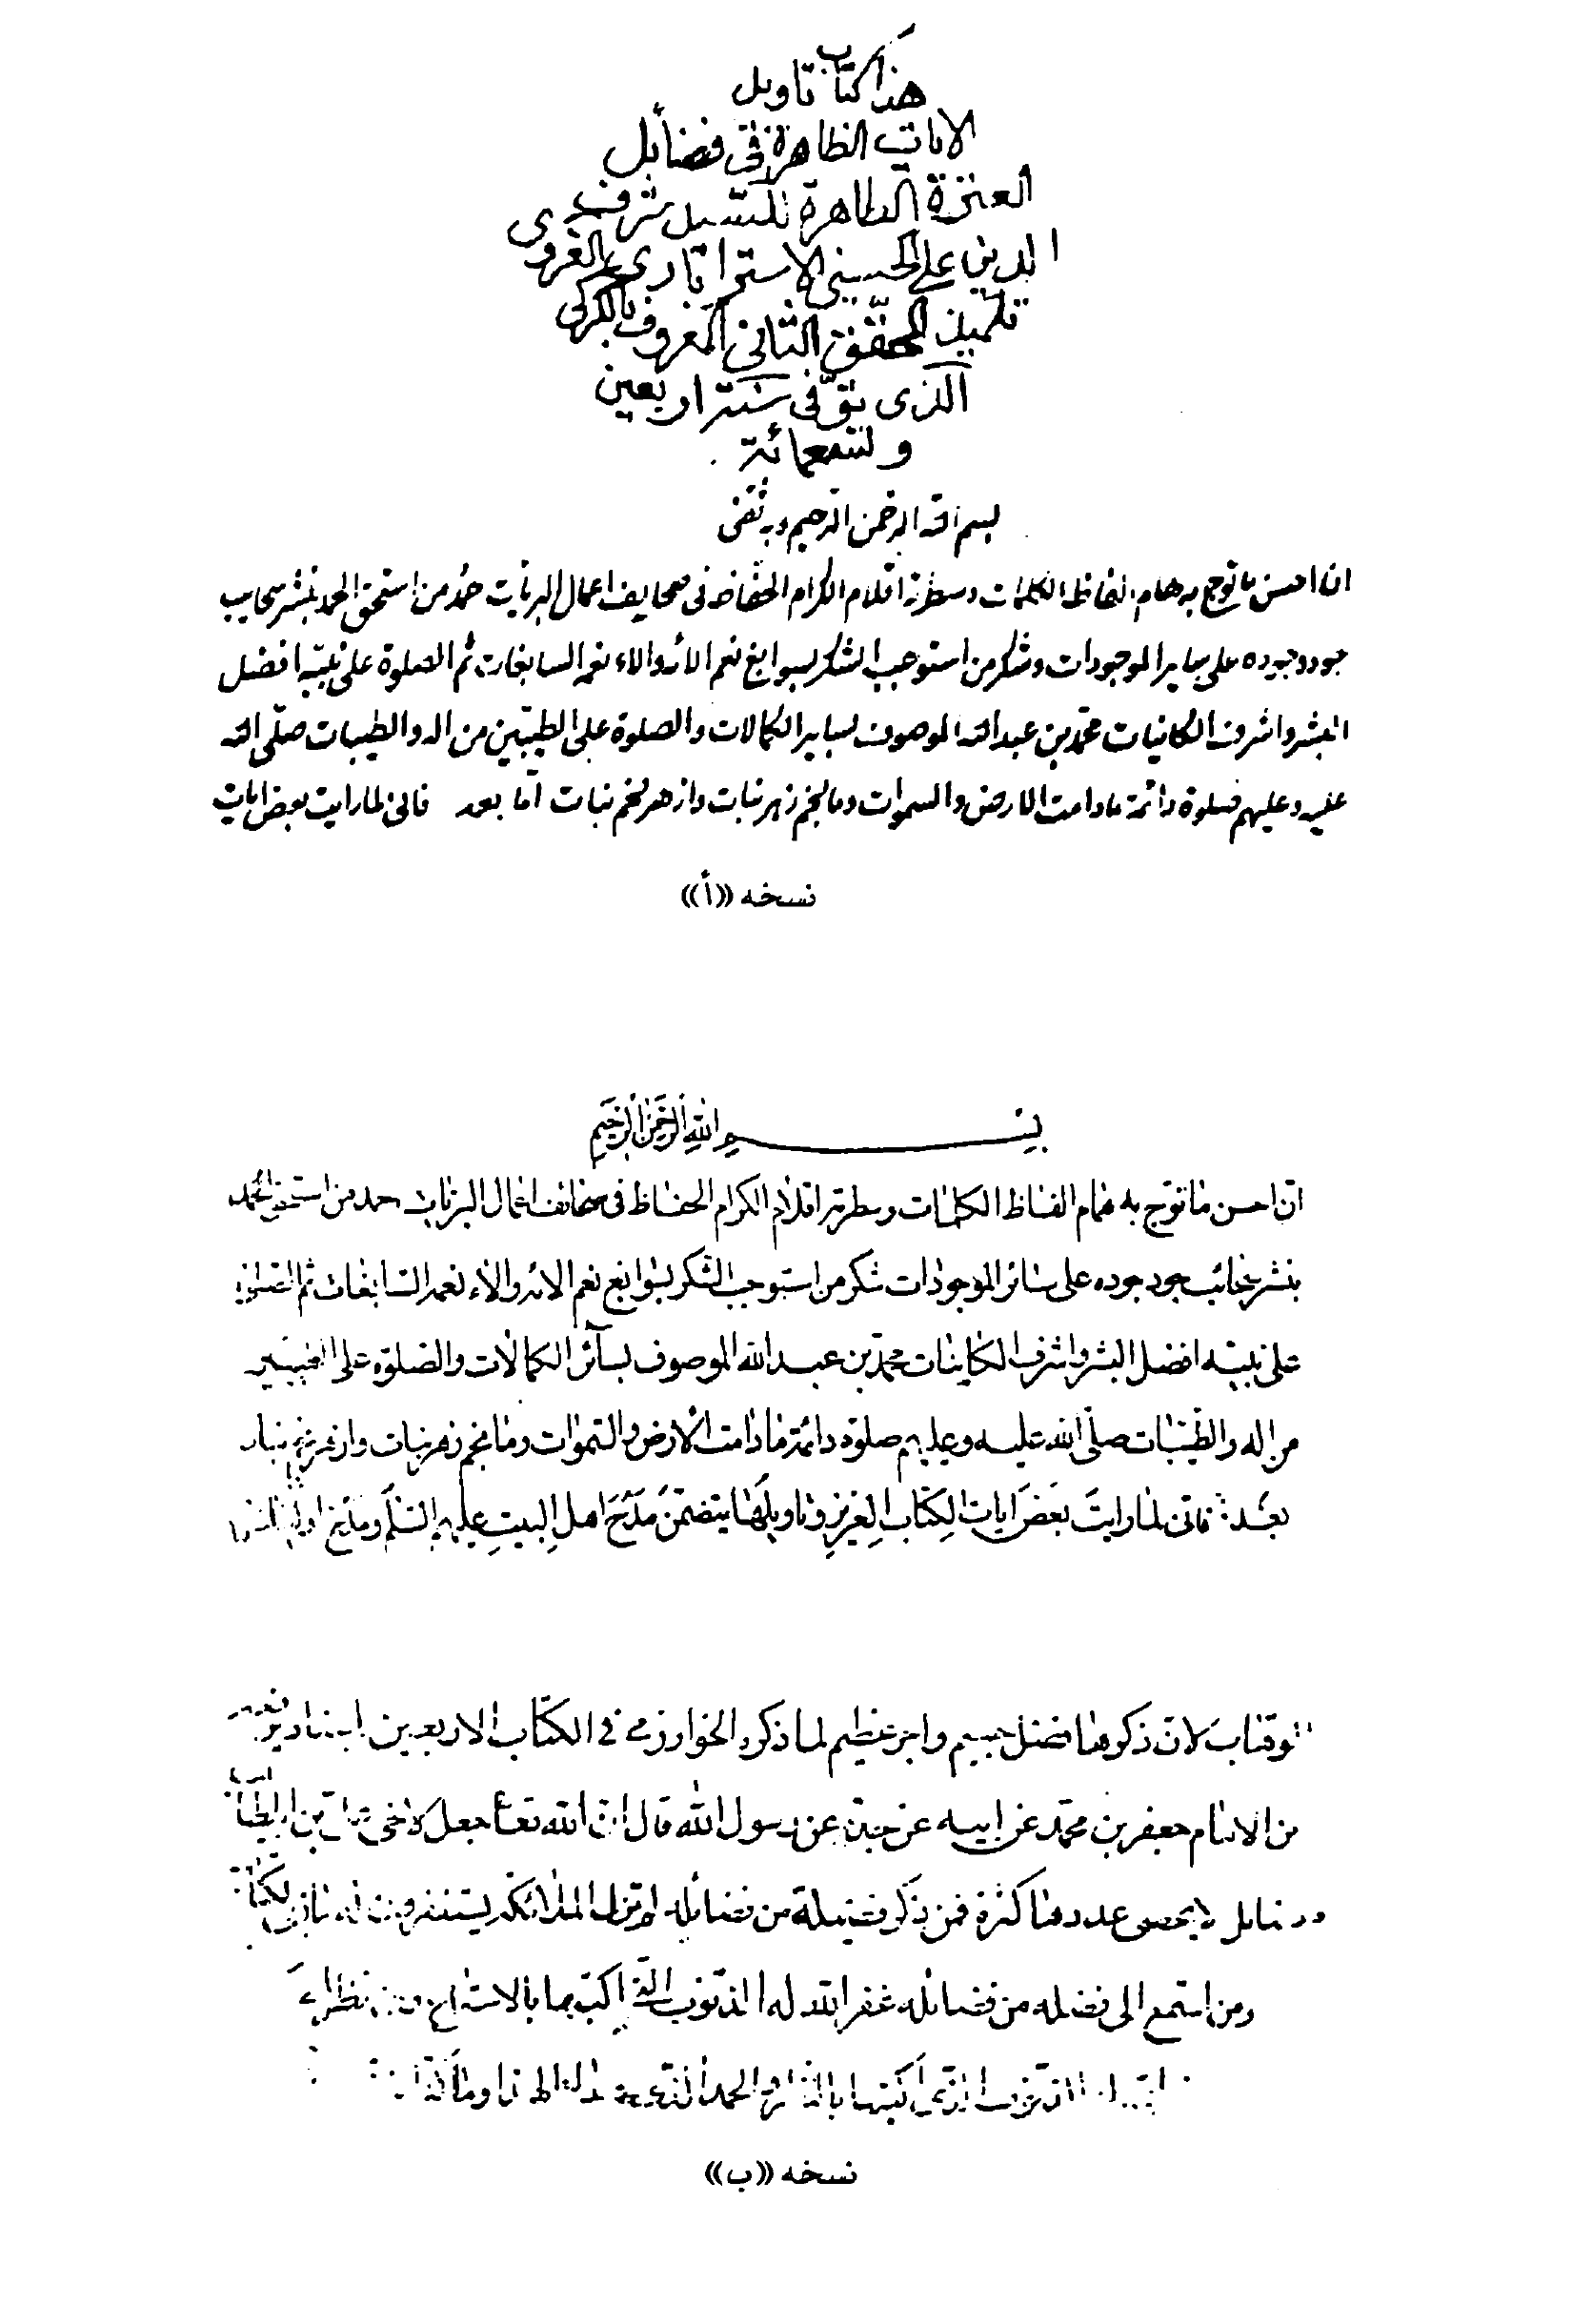 هذا كتاب تاويل
الايات الظاهرة في فضائل
العترة الطاهرة للسيد شرف
الدين علي الحسيني الاسترابادى الغروى
تلميذ المحقق الثاني المعروف بالكركى
الذى توفى سنة اربعين
وتسعمائة
بسم الله الرحمن الرحيم وبه ثقتى
ان احسن ما توج به هام الفاظ الكلمات وسطرته اقلام الكرام الحفاظ فى صحايف اعمال البريات حمد من استحق الحمد بنشر سحايب
جود وجوده على ساير الموجودات وشكر من استوجب الشكر بسوابغ نعم الائه والاء نعمه السابغات ثم الصلوة على نبيه افضل
البشر واشرف الكائنات محمد بن عبد الله الموصوف بساير الكمالات والصلوة على الطيبين من اله والطيبات صلى الله
عليه وعليهم صلوة دائمة ما دامت الارض والسموات وما نجم زهر نبات وازهر نجم نبات اما بعد فانى لما رايت بعض ايات
نسخه «أ»
بسم الله الرحمن الرحيم
ان احسن ما توج به هام الفاظ الكلمات وسطرته اقلام الكرام الحفاظ فى صحائف اعمال البريات حمد من استحق الحمد
بنشر سحائب جود جوده على سائر الموجودات شكر من استوجب الشكر بسوابغ نعم الائه والاء نعمه السابغات ثم الصلوة
على نبيه افضل البشر واشرف الكاينات محمد بن عبد الله الموصوف بسائر الكمالات والصلوة على الطيبين
من اله والطيبات صلى الله عليه وعليهم صلوة دائمة ما دامت الارض والسموات وما نجم زهر نبات وازهر نجم نبات
بعد فانى لما رايت بعض ايات الكتاب العزيز وتاويلها يتضمن مدح اهل البيت عليهم السلم ومدح اوليائهم
لان ذكرها فضل جسيم واجر عظيم لما ذكره الخوارزمي في الكتاب الاربعين
من الامام جعفر بن محمد عن ابيه عن جده عن رسول الله قال ان الله تعالى جعل لاخى على بن ابيطالب
فضايل لا يحصى عددها كثرة فمن ذكر فضيلة من فضائله لم تزل الملائكة يستغفرون له
ومن استمع الى فضيلة من فضائله غفر الله له الذنوب التى اكتسبها بالاستماع ومن نظر
الذنوب التى اكتسبها بالنظر والحمد لله
نسخه «ب»